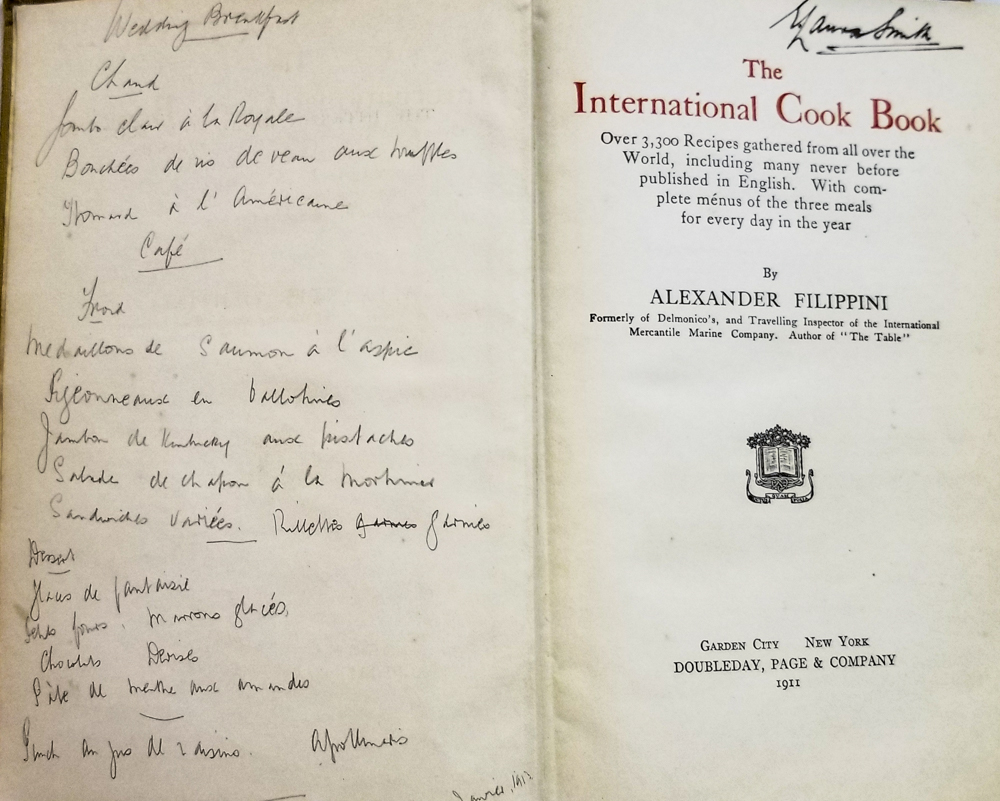 Wedding Breakfast
Chaud
clair à la Royale
Bouchées de ris de veau aux truffles
Homard à l'Américaine
Café
Froid
Medaillons de Saumon à l'aspic
Pigeonneaux en ballotines
Jambon de Kentucky aux pistaches
Salade de chapon à la Mortimer
Sandwiches variées. Rillettes garnies garnies
Dessert
Glaces de fantaisie
Petits fours. Marrons glacés,
Chocolats Devises
Pâte de menthe aux amandes
Punch au jus de raisins. Apollinaris
Janvier, 1913
Laura Smith
The
International Cook Book
Over 3,300 Recipes gathered from all over the
World, including many never before
published in English. With com-
plete ménus of the three meals
for every day in the year
By
ALEXANDER FILIPPINI
Formerly of Delmonico's, and Travelling Inspector of the International
Mercantile Marine Company. Author of "The Table"
GARDEN CITY NEW YORK
DOUBLEDAY, PAGE & COMPANY
1911